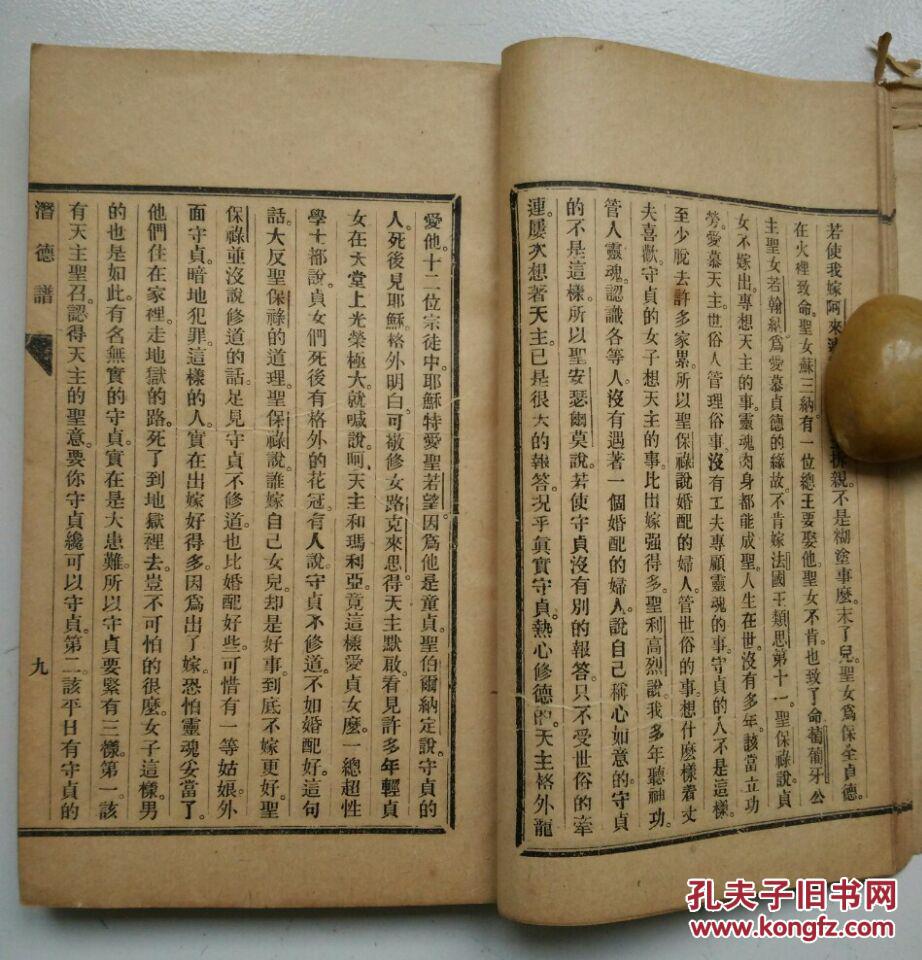 若使我嫁阿來
親不是糊塗事麽末了兒聖女爲保全貞德
在火裡致命聖女蘇三納有一位總王要娶他聖女不肯也致了命葡葡牙公
主聖女若翰納爲愛慕貞德的緣故不肯嫁法國王類思第十一聖保祿說貞
女不嫁出專想天主的事靈魂肉身都能成聖人生在世沒有多年該當立功
勞愛慕天主世俗人管理俗事沒有工夫專顧靈魂的事守貞的人不是這樣
至少脫去許多家累所以聖保祿說婚配的婦人管世俗的事想什麽樣着丈
夫喜歡守貞的女子想天主的事比出嫁强得多聖利高烈說我多年聽神功
管人靈魂認識各等人沒有遇著一個婚配的婦人說自己稱心如意的守貞
的不是這樣所以聖安瑟爾莫說若使守貞沒有別的報答只不受世俗的牽
連屢次想著天主已是很大的報答况乎眞實守貞熱心修德的天主格外龍
愛他十二位宗徒中耶穌特愛聖若望因爲他是童貞聖伯爾納定說守貞的
人死後見耶穌格外明白可敬修女路克來思得天主默啟看見許多年輕貞
女在天堂上光榮極大就喊說呵天主和瑪利亞竟這樣愛貞女麽一總超性
學士都說貞女們死後有格外的花冠有人說守貞不修道不如婚配好這句
話大反聖保祿的道理聖保祿說誰嫁自己女兒却是好事到底不嫁更好聖
保祿並沒說修道的話足見守貞不修道也比婚配好些可惜有一等姑娘外
面守貞暗地犯罪這樣的人實在出嫁好得多因爲出了嫁恐怕靈魂妥當了
他們住在家裡走地獄的路死了到地獄裡去豈不可怕的很麽女子這樣男
的也是如此有名無實的守貞實在是大患難所以守貞要緊有三樣第一該
有天主聖召認得天主的聖意要你守貞纔可以守貞第二該平日有守貞的
潛德譜
九
孔夫子旧书网
www.kongfz.com